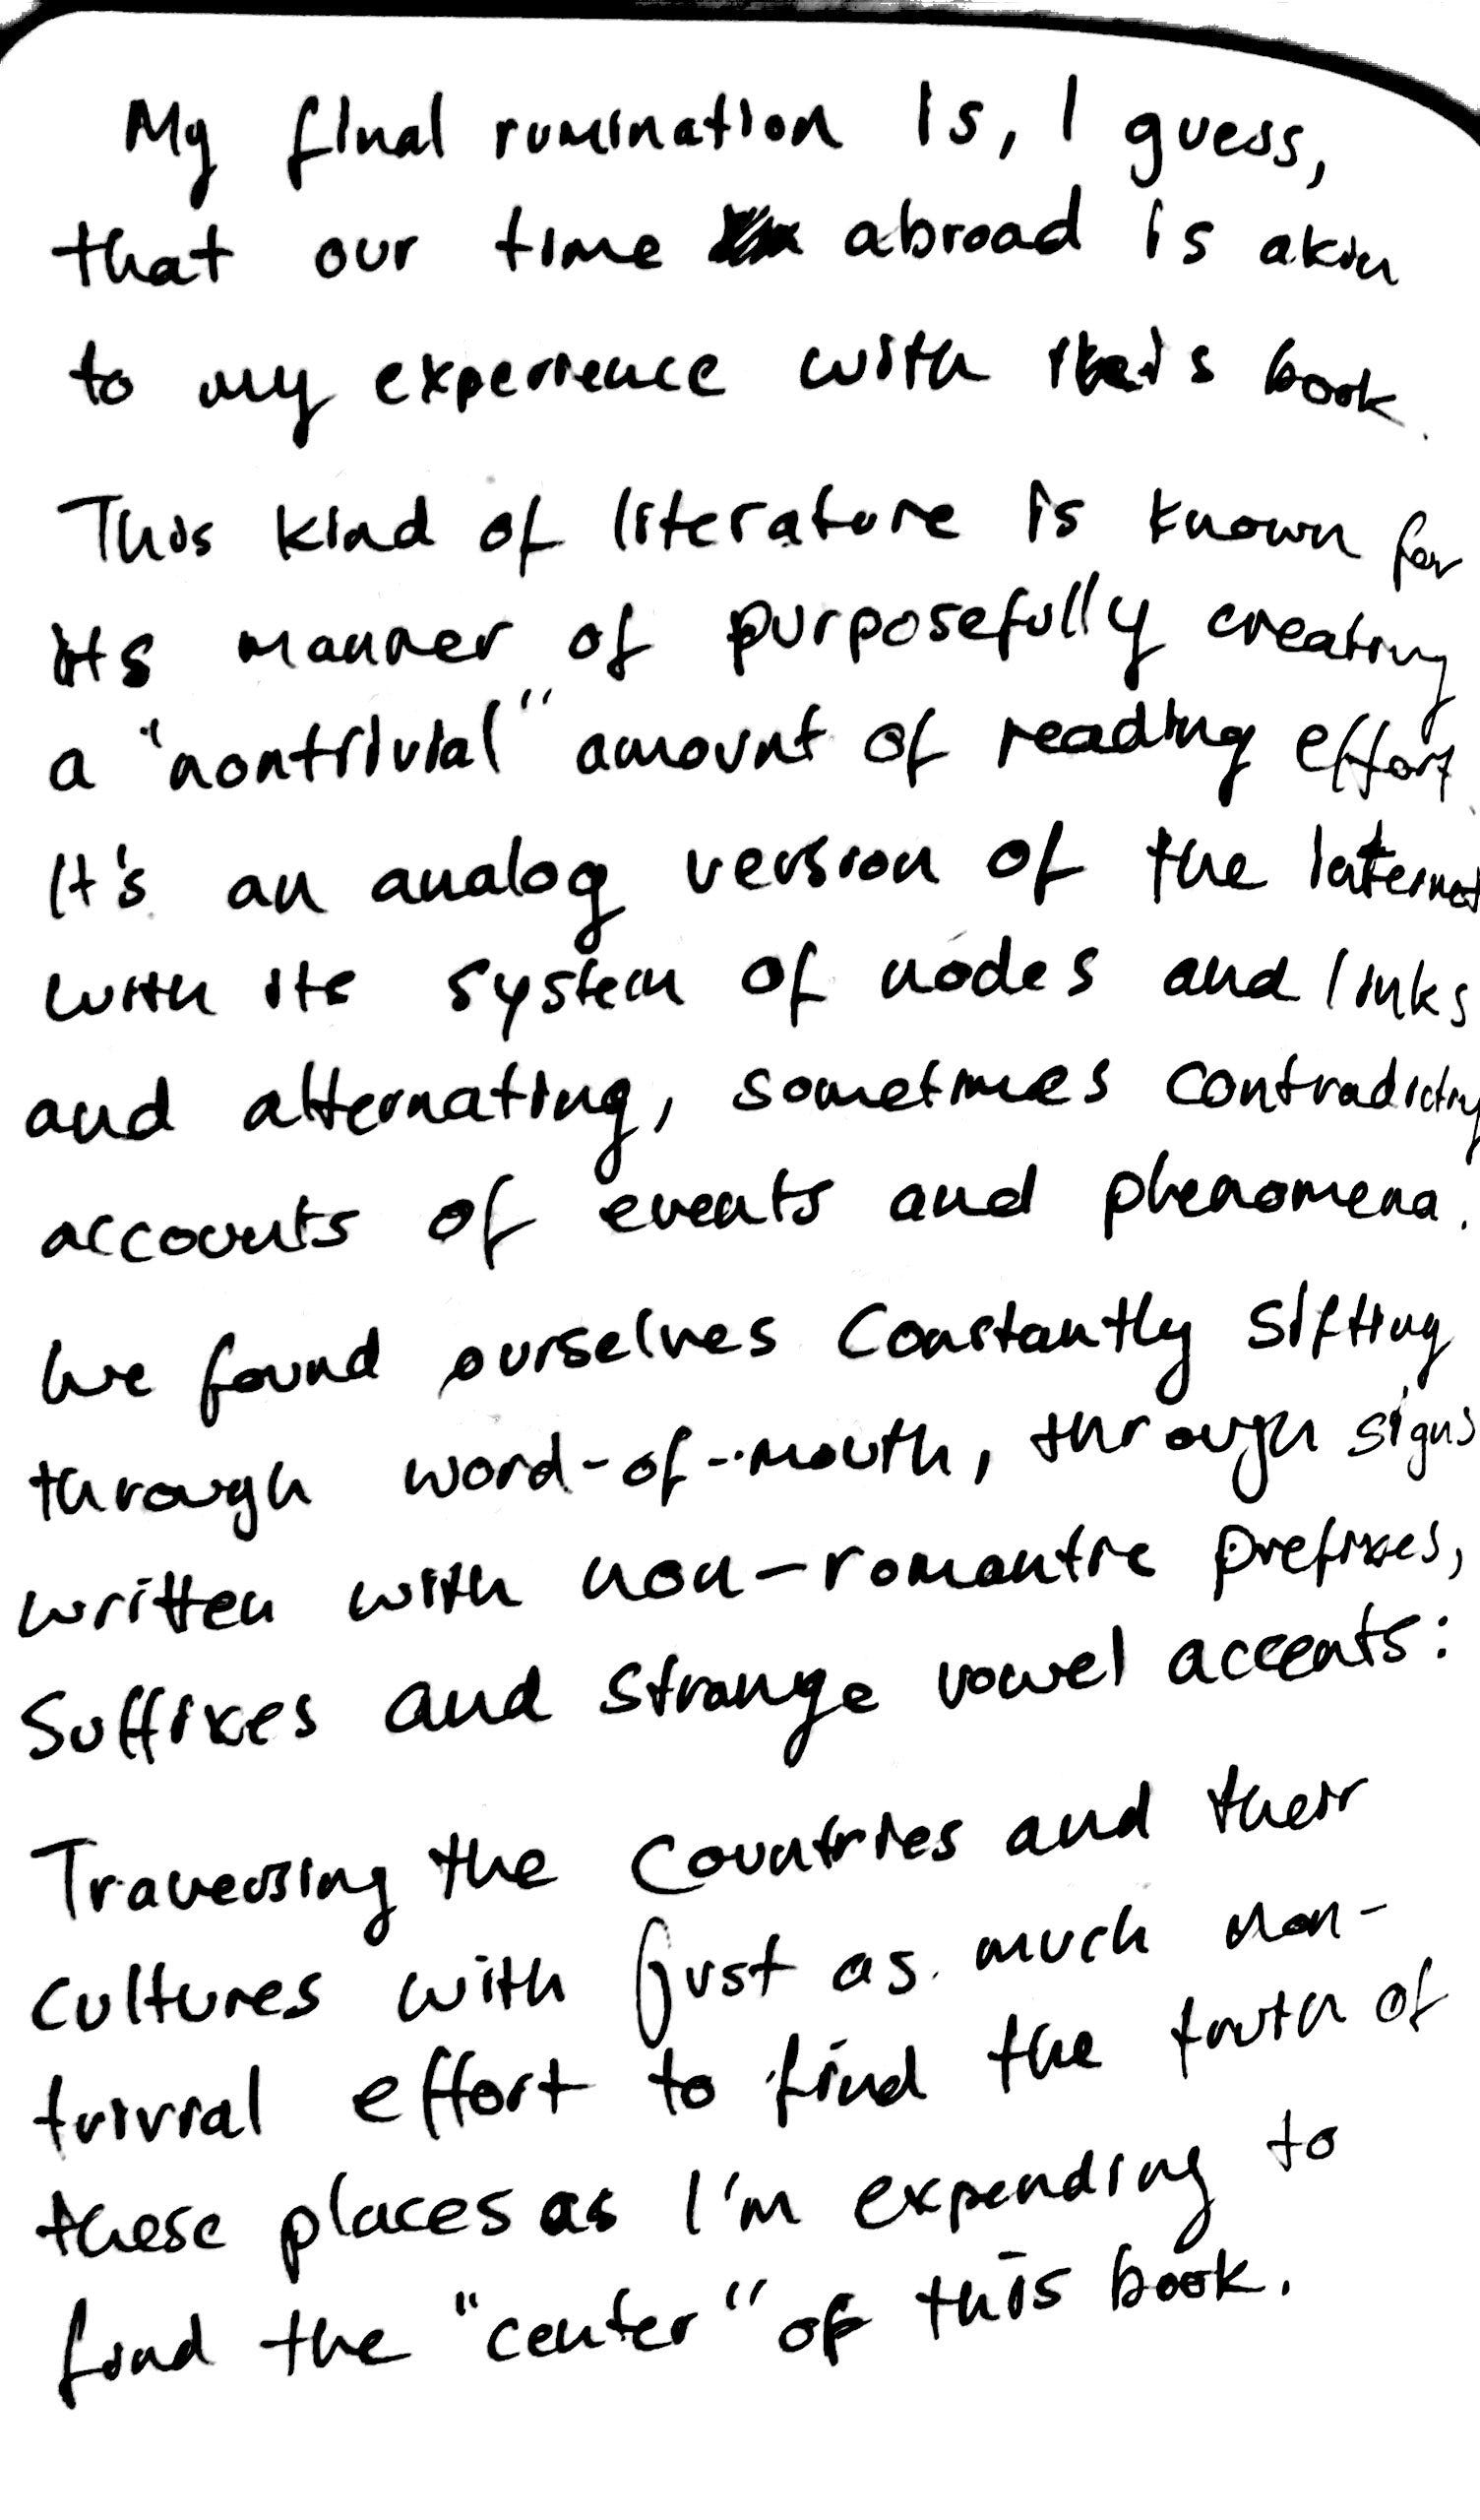 My final rumination is, I guess,
that our time abroad is akin
to my experience with this book.
This kind of literature is known for
its manner of purposefully creating
a "nontrivial" amount of reading effort.
It's an analog version of the Internet
with its system of nodes and links
and alternating, sometimes contradicting
accounts of events and phenomena.
We found ourselves constantly sifting
through word-of-mouth, through signs
written with non-romantic prefixes,
suffixes and strange vowel accents:
Traversing the countries and their
cultures with just as much non-
trivial effort to find the truth of
these places as I'm expending to
find the "center" of this book.